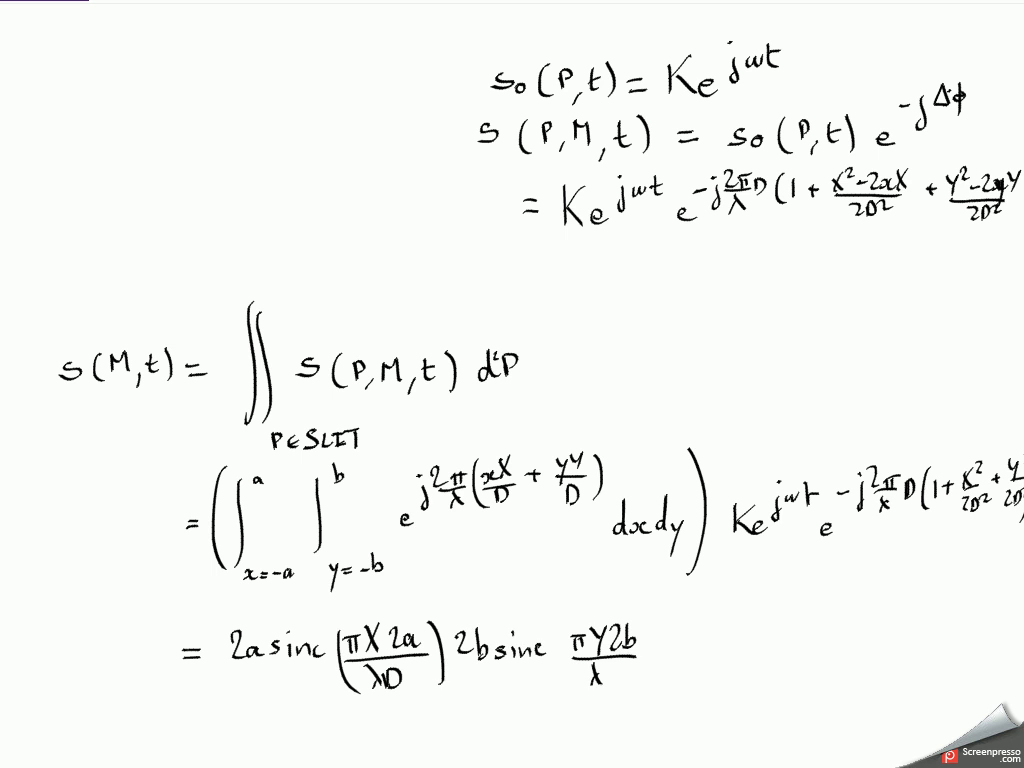 s₀(P,t) = K e^{jωt}
s(P,M,t) = s₀(P,t) e^{-jΔϕ}
= K e^{jωt} e^{-j\frac{2π}{λ}D(1 + \frac{X²-2xX}{2D²} + \frac{Y²-2yY}{2D²}
s(M,t) = ∬_{P∈SLIT} s(P,M,t) d²P
= (∫_{x=-a}^{a} ∫_{y=-b}^{b} e^{j\frac{2π}{λ}(\frac{xX}{D} + \frac{yY}{D})} dxdy) K e^{jωt} e^{-j\frac{2π}{λ}D(1+\frac{X²}{2D²}+\frac{Y²}{2D²}
= 2a sinc(\frac{πX2a}{λD}) 2b sinc \frac{πY2b}{λ}
Screenpresso
.com